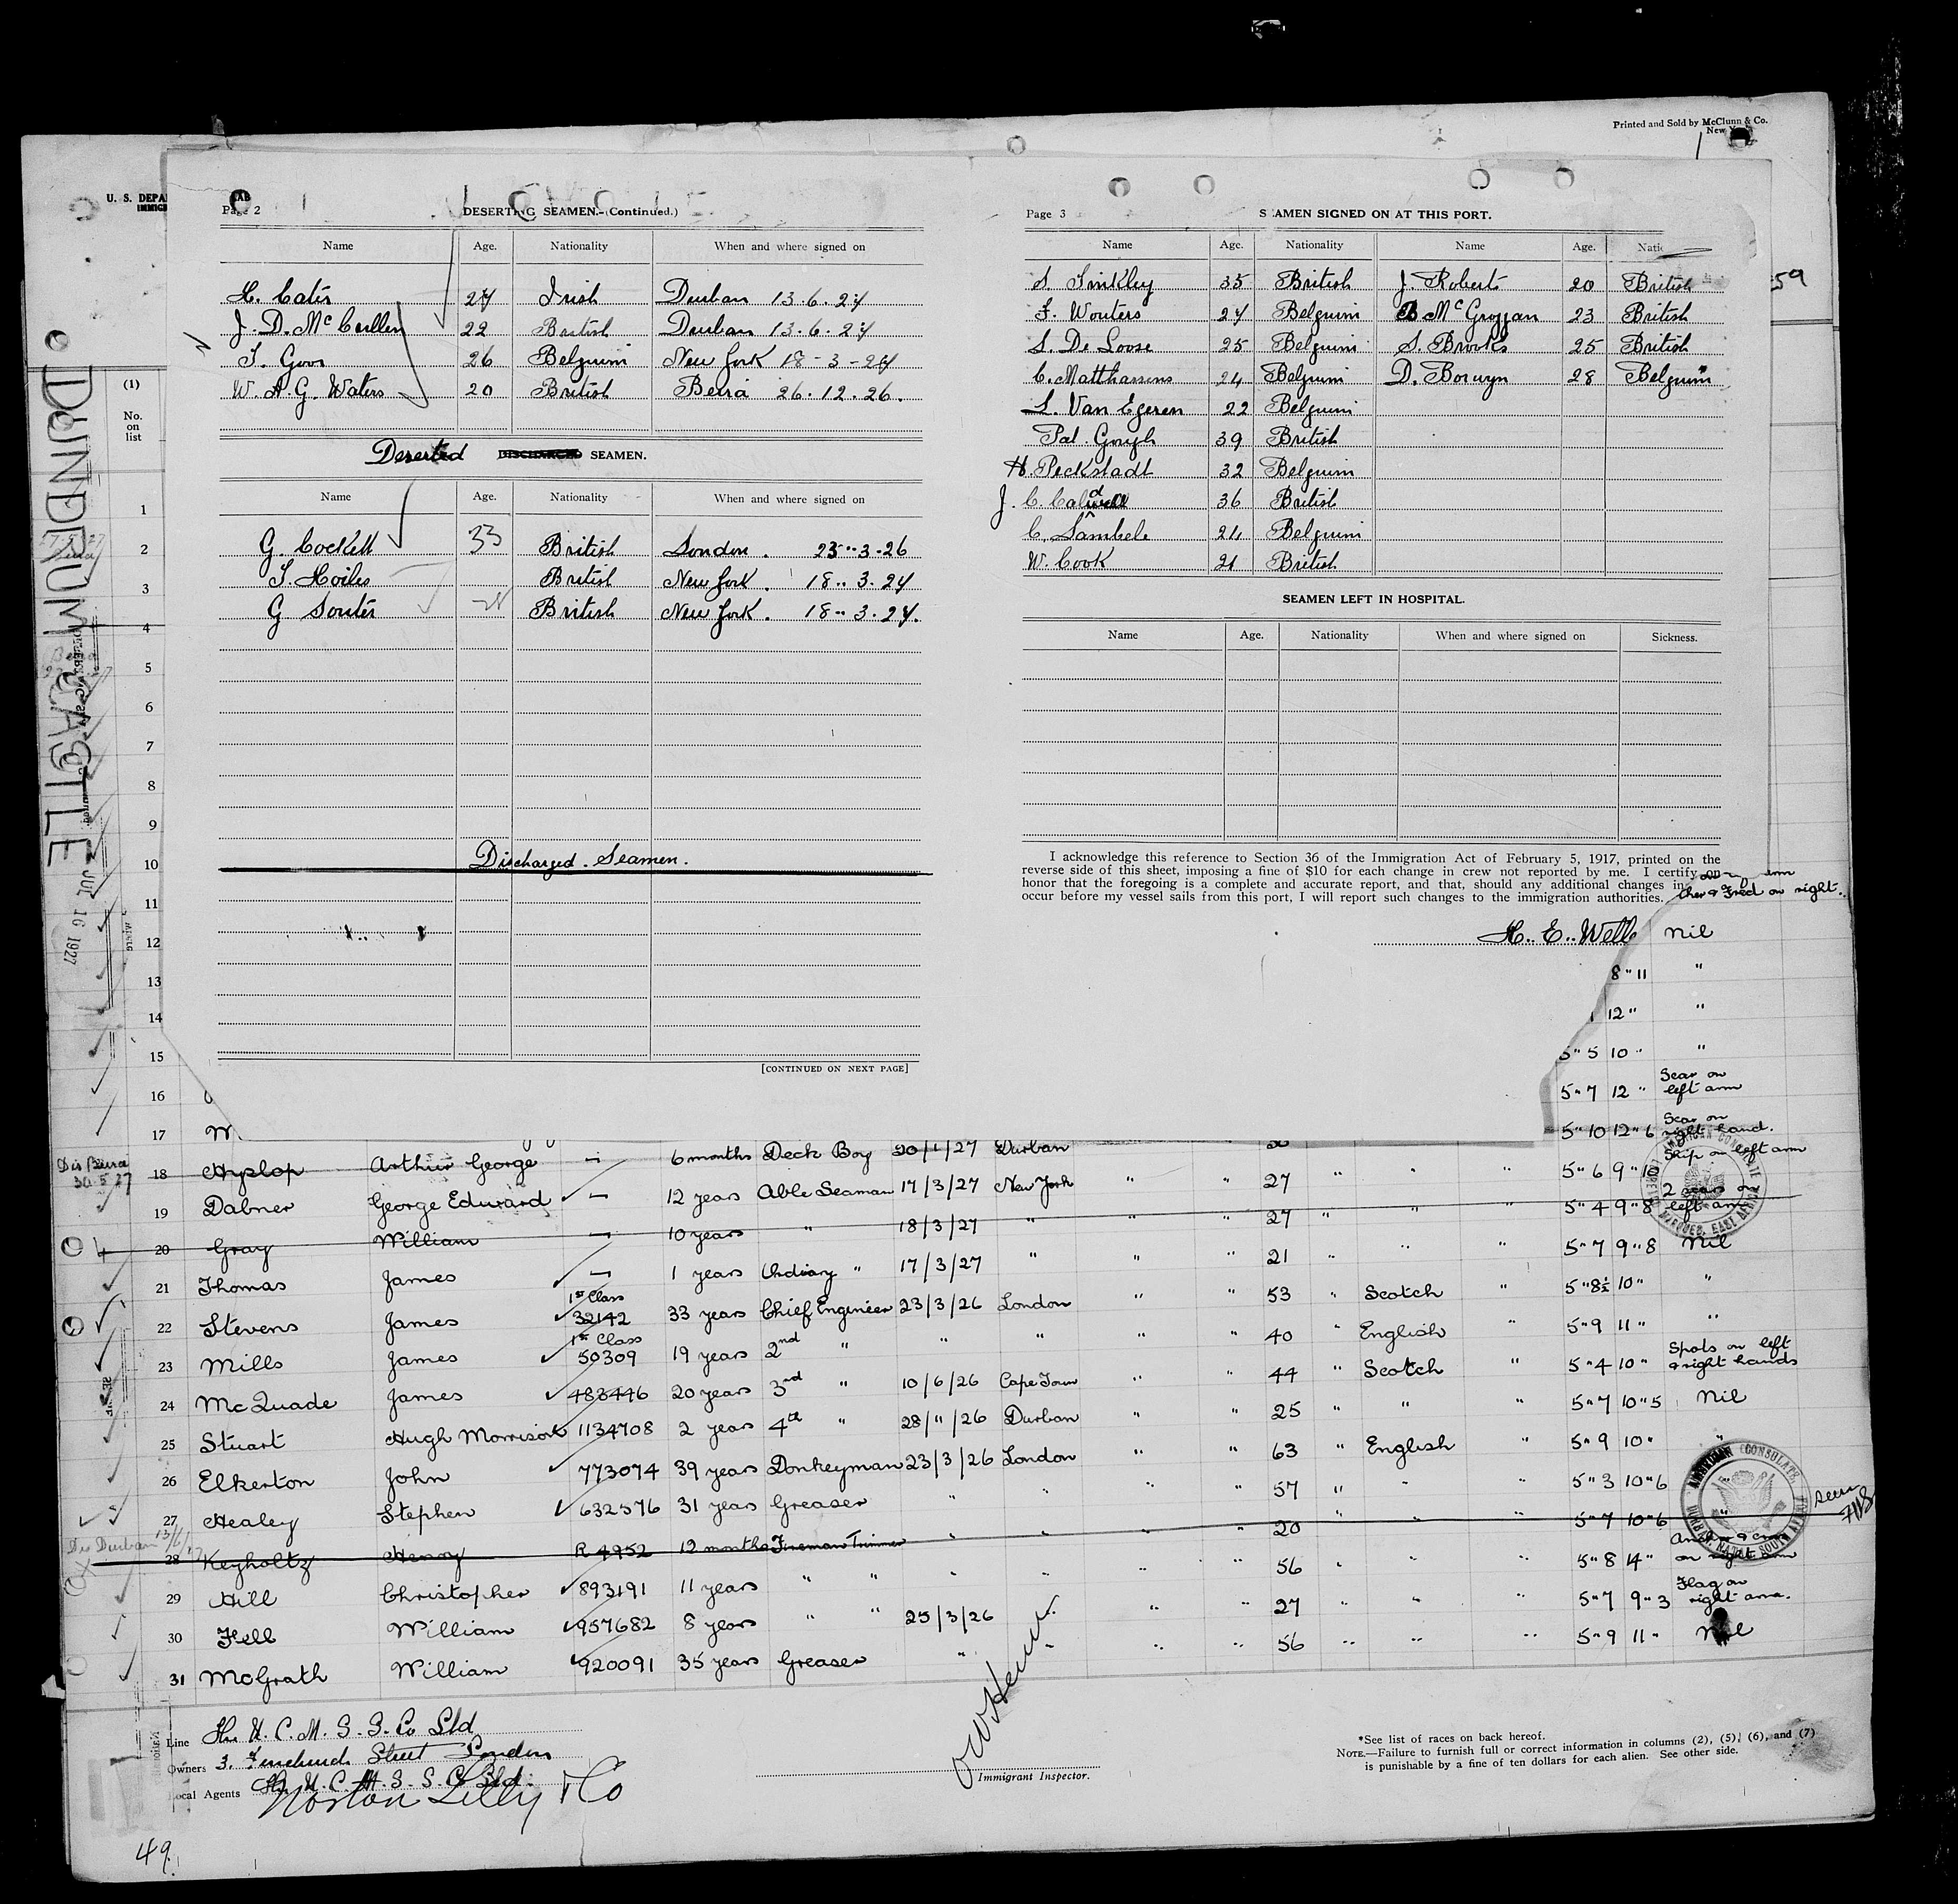 Printed and Sold by McClunn & Co.
New
U. S. DEPA
IMMIG
Page 2
DESERTING SEAMEN.-(Continued.)
Name Age. Nationality When and where signed on
H. Cater 27 Irish Durban 13.6.27
J. D. McCullen 22 British Durban 13.6.27
26 Belguim New York 18-3-27
W. A. G. Waters 20 British Beira 26.12.26.
Deserted DISCHARGED SEAMEN.
Name Age. Nationality When and where signed on
G. Cockett 33 British London. 23"3-26
British New York. 18"3.27
G Souter British New York. 18"3.27.
Discharged. Seamen.
[CONTINUED ON NEXT PAGE]
Page 3
SEAMEN SIGNED ON AT THIS PORT.
Name Age. Nationality Name Age. Natio
35 British J. Roberts 20 British
F. Wouters 24 Belguim B. McGroggan 23 British
L. De Loose 25 Belguim S. Brooks 25 British
24 Belguim D. Borwyn 28 Belguim
L. Van Egeren 22 Belguim
Pat. Gough 39 British
H. Peckstadt 32 Belguim
J. C. Caldwell 36 British
C. Lambele 24 Belguim
W. Cook 21 British
SEAMEN LEFT IN HOSPITAL.
Name Age. Nationality When and where signed on Sickness.
I acknowledge this reference to Section 36 of the Immigration Act of February 5, 1917, printed on the
reverse side of this sheet, imposing a fine of $10 for each change in crew not reported by me. I certify on
honor that the foregoing is a complete and accurate report, and that, should any additional changes in
occur before my vessel sails from this port, I will report such changes to the immigration authorities.
H. E. Wells
59
(1)
No.
on
list
DUNDRUM CASTLE
JUL 16 1927
1
2
3
4
5
6
7
8
9
10
11
12
13
14
15
16
17
Fred on right.
Nil
8"11 "
12" "
5"5 10" "
5"7 12" Scar on left arm
5"10 12"6 Scar on right hand.
Dis Beira
30.5.27
18 Hyslop Arthur George — 6 months Deck Boy 20/1/27 Durban
19 Dabner George Edward — 12 years Able Seaman 17/3/27 New York " " 27 " " "
20 Gray William — 10 years " 18/3/27 " " " 27 " " "
21 Thomas James — 1 years Ordiary " 17/3/27 " " " 21 " " "
22 Stevens James 1st Class 32142 33 years Chief Engineer 23/3/26 London " " 53 " Scotch " 5"8½ 10" "
23 Mills James 1st Class 50309 19 years 2nd " " " " " 40 " English " 5"9 11" "
24 McQuade James 488446 20 years 3rd " 10/6/26 Cape Town " " 44 " Scotch " 5"4 10" Spots on left & right hands
25 Stuart Hugh Morrison 1134708 2 years 4th " 28/11/26 Durban " " 25 " " " 5"7 10"5 Nil
26 Elkerton John 773074 39 years Donkeyman 23/3/26 London " " 63 " English " 5"9 10" "
27 Healey Stephen 632576 31 years Greaser " " " " 57 " " " 5"3 10"6
Dis Durban 13/6/27
28 Keyholtz Henry R 4952 12 months Fireman Trimmer " " " 20 " " " 5"7 10"6
29 Hill Christopher 893191 11 years " " " " " " 56 " " " 5"8 14" on right arm
30 Fell William 957682 8 years " " 25/3/26 " " 27 " " " 5"7 9"3 Flag on right arm.
31 McGrath William 920091 35 years Greaser " " " 56 " " " 5"9 11" Nil
AMERICAN CONSULATE
DURBAN, NATAL, SOUTH AFRICA
Line The U. C. M. S. S. Co Ltd
Owners 3. Fenchurch Street London
Local Agents The U. C. M. S. S. Co Ltd.
Norton Lilly & Co
Immigrant Inspector.
*See list of races on back hereof.
NOTE.—Failure to furnish full or correct information in columns (2), (5), (6), and (7)
is punishable by a fine of ten dollars for each alien. See other side.
49.